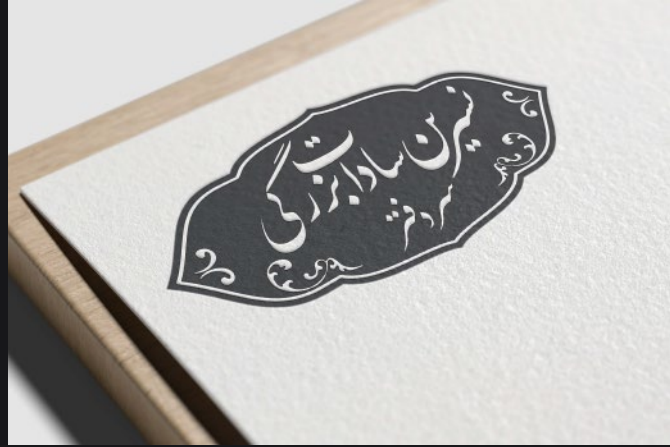 نسرین سادات بزرگی
سردفتر